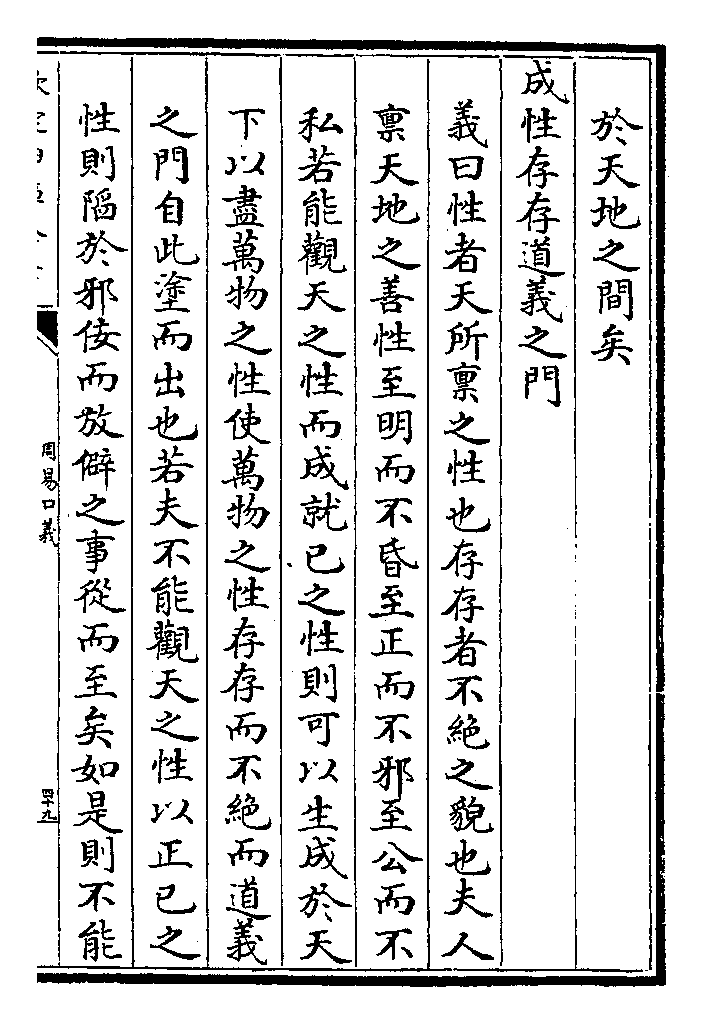 於天地之間矣
成性存存道義之門
義曰性者天所禀之性也存存者不絶之貌也夫人
禀天地之善性至明而不昏至正而不邪至公而不
私若能觀天之性而成就已之性則可以生成於天
下以盡萬物之性使萬物之性存存而不絶而道義
之門自此塗而出也若夫不能觀天之性以正已之
性則陷於邪佞而放僻之事從而至矣如是則不能
周易口義
四十九